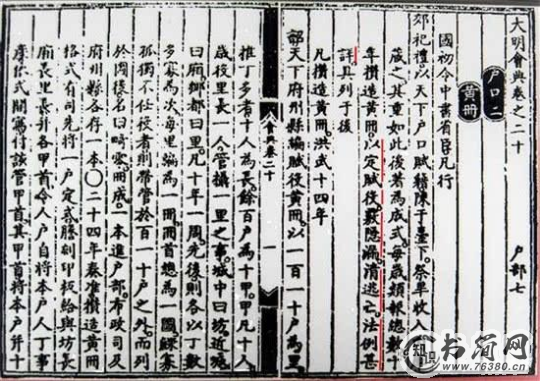 大明會典卷之二十 戶部七
戶口二
黃冊
國初令中書省臣凡行
郊祀禮以天下戶口賦籍陳于臺下祭畢收入
藏之其重如此後著為成式每歲類報總數十
年攢造黃冊以定賦役覈隱漏清逃亡法例甚
詳具列于後
凡攢造黃冊洪武十四年
詔天下府州縣編賦役黃冊以一百一十戶為里
會典卷二十
一
推丁多者十人為長餘百戶為十甲甲凡十人
歲役里長一人管攝一里之事城中曰坊近城
曰廂鄉都曰里凡十年一周先後則各以丁數
多寡為次每里編為一冊冊首總為一圖鰥寡
孤獨不任役者則帶管於百一十戶之外而列
於圖後名曰畸零冊成一本進戶部布政司及
府州縣各存一本○二十四年奏准攢造黃冊
格式有司先將一戶定式謄刻印板給與坊長
廂長里長并各甲首令人戶自將本戶人丁事
產依式開寫付該管甲首其甲首將本戶并十
书简网
www.76380.cn